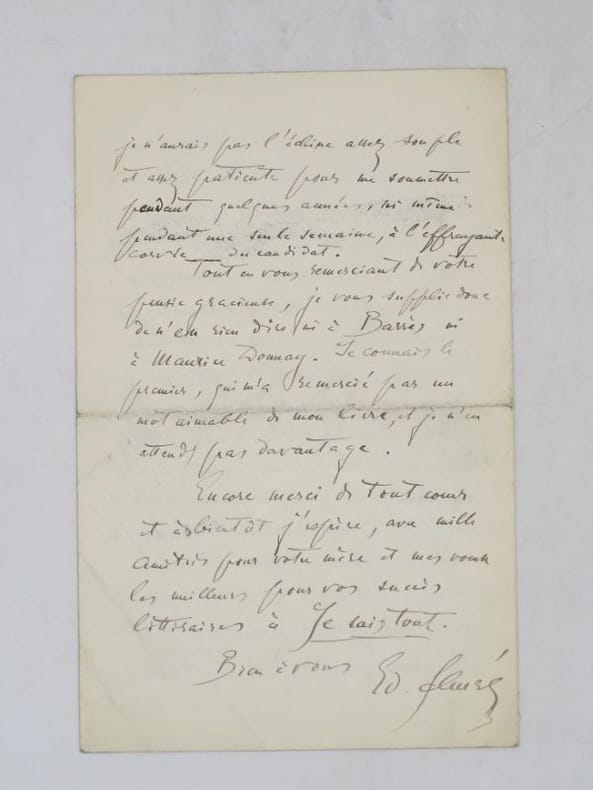 je n'aurais pas l'échine assez souple
et assez patiente pour me soumettre
pendant quelques années, ni même
pendant une seule semaine, à l'effrayante
corvée du candidat.
Tout en vous remerciant de votre
pensée gracieuse, je vous supplie donc
de n'en rien dire ni à Barrès ni
à Maurice Donnay. Je connais le
premier, qui m'a remercié par un
mot aimable de mon livre, et je n'en
attends pas davantage.
Encore merci de tout cœur
et à bientôt j'espère, avec mille
amitiés pour votre mère et mes vœux
les meilleurs pour vos succès
littéraires à Je sais tout.
Bien à vous Ed.